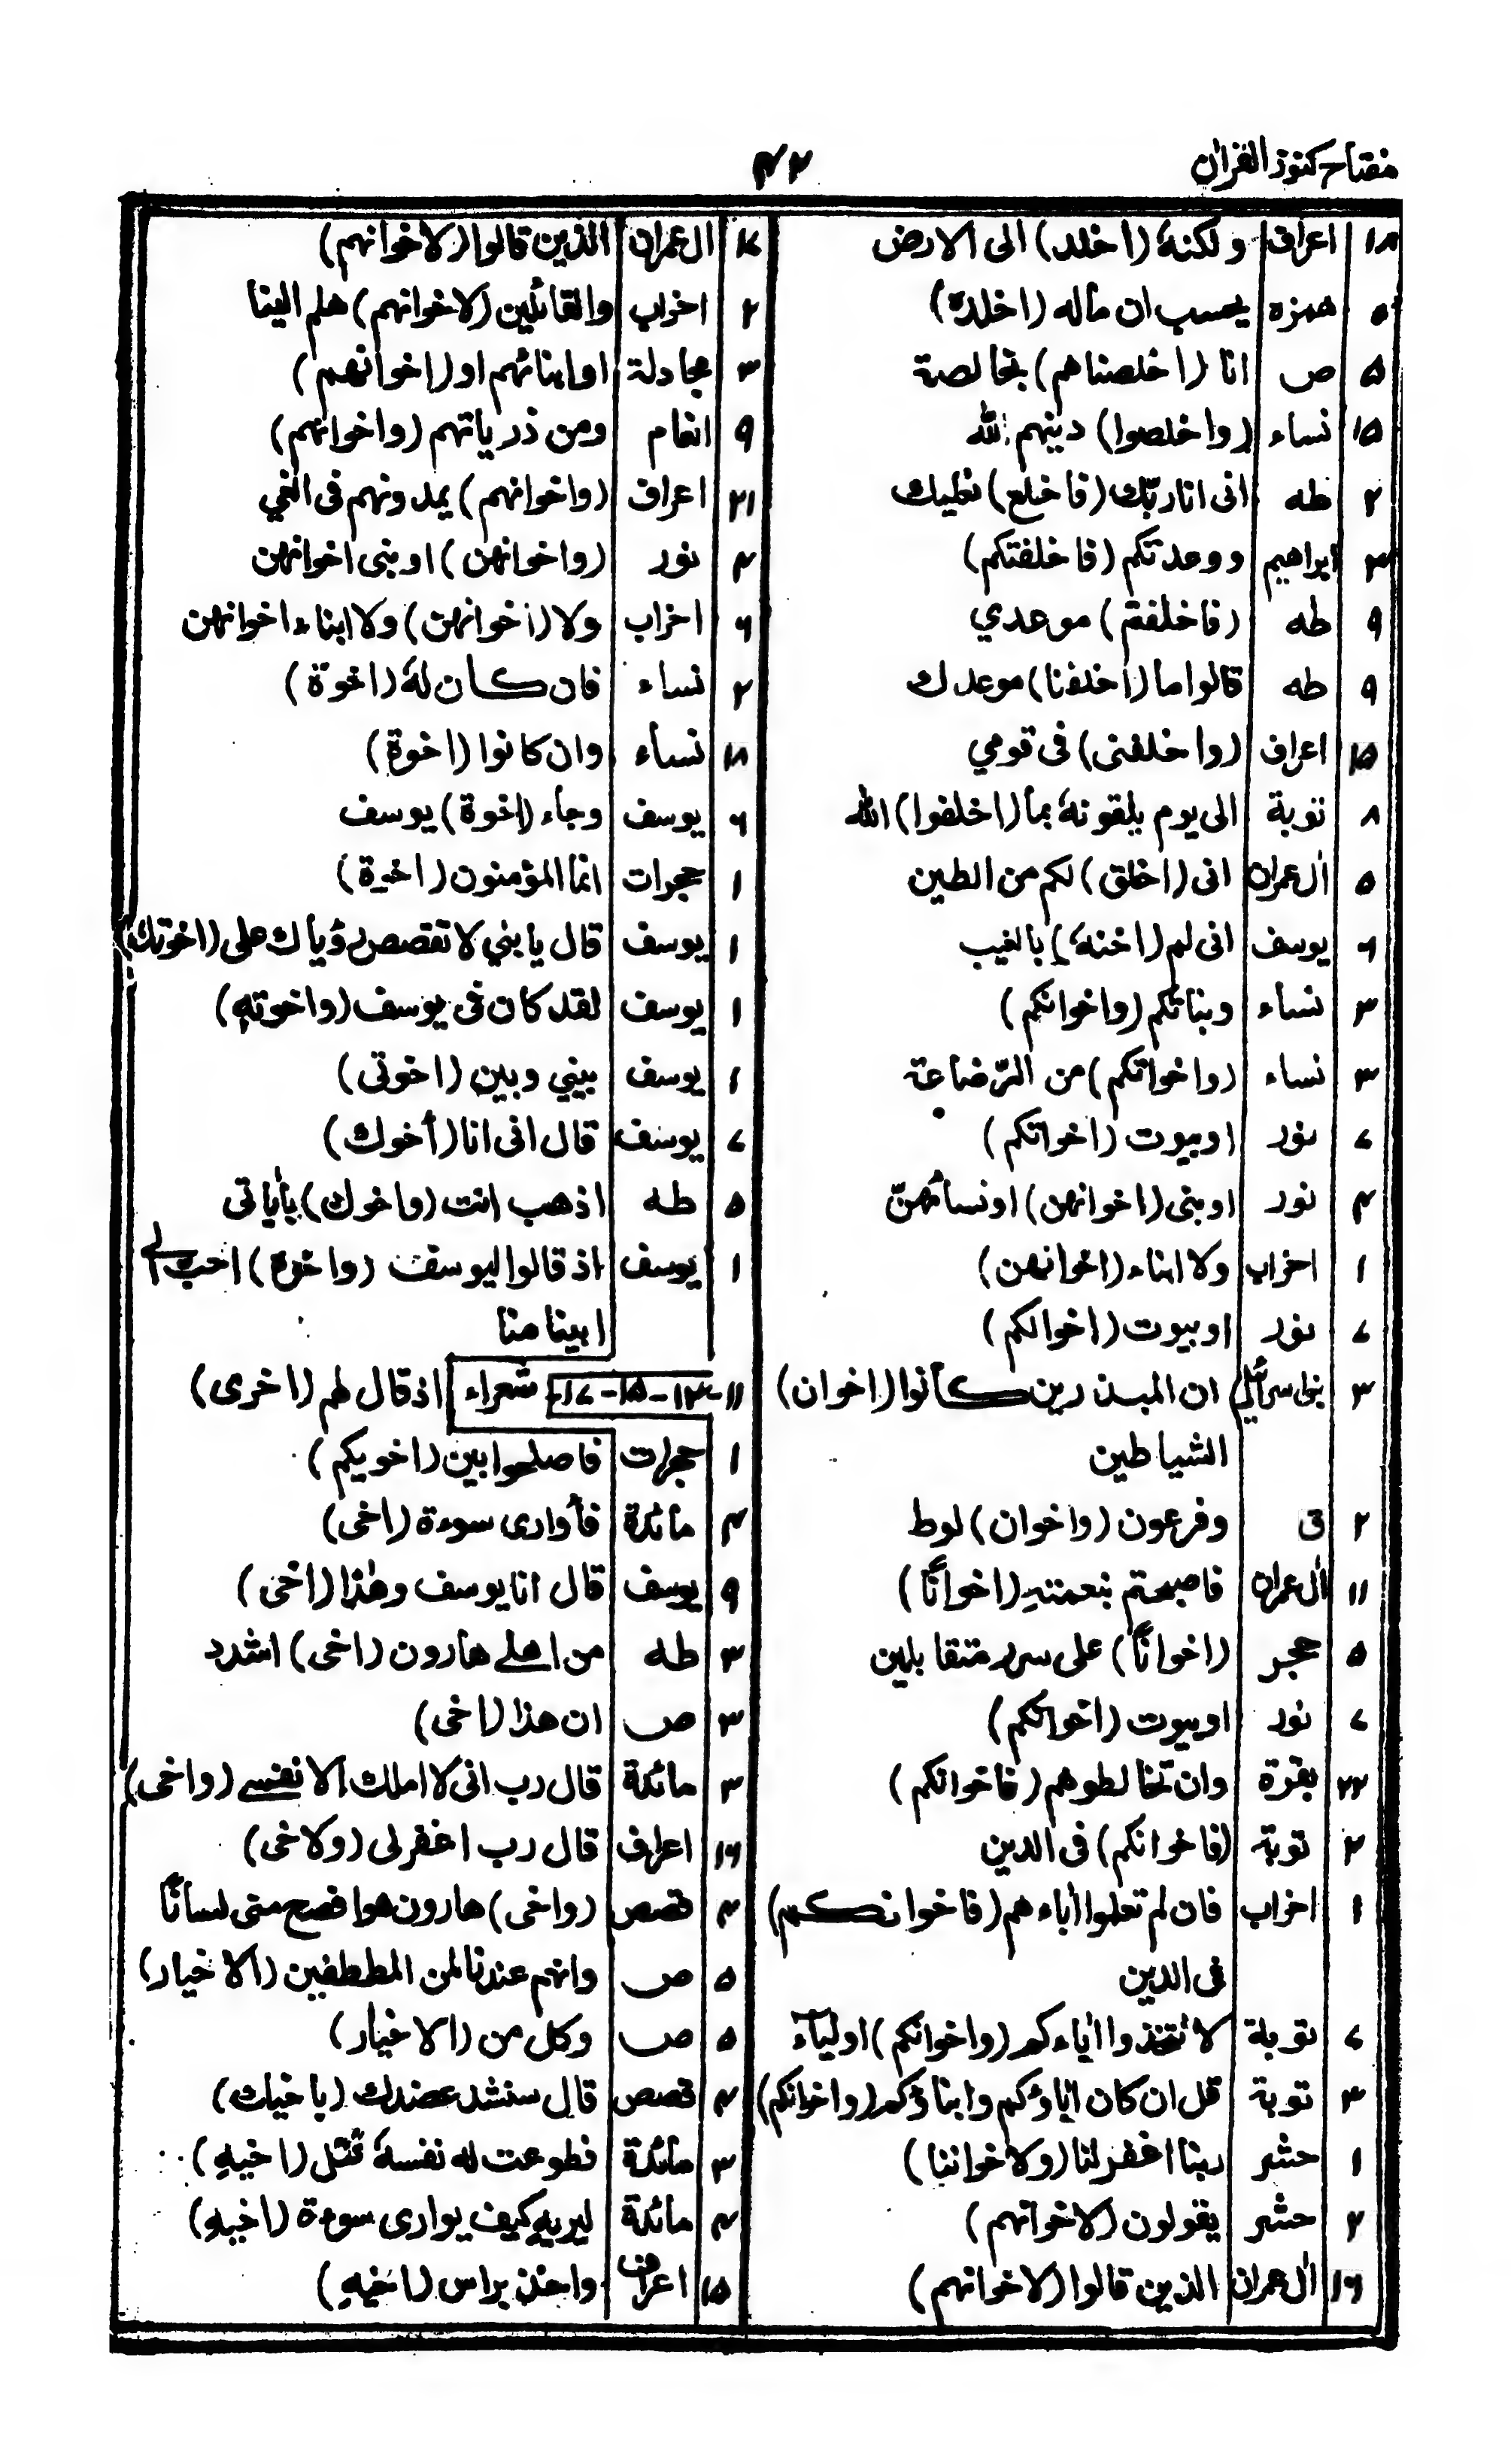 مفتاح كنوز القران
۴۲
۱۸ اعراف ولكنهٗ (اخلد) الى الارض
۵ همزه يحسب ان ماله (اخلده)
۵ ص انا (اخلصناهم) بخالصة
۱۵ نساء (واخلصوا) دينهم لله
۲ طه انى انا ربّك (فاخلع) نعليك
۴ ابراهيم ووعدتكم (فاخلفتكم)
۹ طه (فاخلفتم) موعدي
۹ طه قالوا ما (اخلفنا) موعدك
۱۵ اعراف (واخلفنى) فى قومي
۸ توبة الى يوم يلقونهٗ بما (اخلفوا) الله
۵ اٰل عمران انى (اخلق) لكم من الطين
۶ يوسف انى لم (اخنهٗ) بالغيب
۳ نساء وبناتكم (واخواتكم)
۳ نساء (واخواتكم) من الرّضاعة
۷ نور او بيوت (اخواتكم)
۴ نور او بنى (اخواتهن) او نسائهنّ
۱ احزاب ولا ابناء (اخواتهن)
۷ نور او بيوت (اخوالكم)
۳ بنى اسرائيل ان المبذرين كانوا (اخوان)
الشياطين
۲ ق وفرعون (واخوان) لوط
۱۱ اٰل عمران فاصبحتم بنعمته (اخوانًا)
۵ حجر (اخوانًا) على سرر متقابلين
۷ نور او بيوت (اخوانكم)
۲۲ بقرة وان تخالطوهم (فاخوانكم)
۲ توبة (فاخوانكم) فى الدين
۱ احزاب فان لم تعلموا اٰباءهم (فاخوانكم)
فى الدين
۷ توبة لا تتخذوا اٰباءكم (واخوانكم) اولياء
۳ توبة قل ان كان اٰباؤكم وابناؤكم (واخوانكم)
۱ حشر ربنا اغفر لنا (ولاخواننا)
۲ حشر يقولون (لاخوانهم)
۱۶ اٰل عمران الذين قالوا (لاخوانهم)
۱۷ ال عمران الذين قالوا (لاخوانهم)
۲ احزاب والقائلين (لاخوانهم) هلم الينا
۳ مجادلة او ابنائهم او (اخوانهم)
۹ انعام ومن ذرياتهم (واخوانهم)
۲۱ اعراف (واخوانهم) يمدونهم فى الغي
۴ نور (واخوانهن) او بنى اخوانهن
۶ احزاب ولا (اخوانهن) ولا ابناء اخوانهن
۲ نساء فان كان لهٗ (اخوة)
۱۸ نساء وان كانوا (اخوة)
۶ يوسف وجاء (اخوة) يوسف
۱ حجرات انما المؤمنون (اخوة)
۱ يوسف قال يا بني لا تقصص رؤياك على (اخوتك)
۱ يوسف لقد كان فى يوسف (واخوته)
۱ يوسف بيني وبين (اخوتى)
۷ يوسف قال انى انا (أخوك)
۵ طه اذهب انت (واخوك) باٰياتى
۱ يوسف اذ قالوا ليوسف (واخوه) احب الى
ابينا منا
۱۱-۱۴-۱۵-۱۷ شعراء اذ قال لهم (اخرى)
۱ حجرات فاصلحوا بين (اخويكم)
۴ مائدة فأوارى سوءة (اخى)
۹ يوسف قال انا يوسف وهٰذا (اخى)
۳ طه من اهلى هارون (اخى) اشدد
۳ ص ان هذا (اخى)
۳ مائدة قال رب انى لا املك الا نفسى (واخى)
۱۶ اعراف قال رب اغفر لى (ولاخى)
۴ قصص (واخى) هارون هو افصح منى لسانًا
۵ ص وانهم عندنا لمن المصطفين (الاخيار)
۵ ص وكل من (الاخيار)
۴ قصص قال سنشد عضدك (باخيك)
۳ مائدة فطوعت له نفسهٗ قتل (اخيهِ)
۴ مائدة ليريهِ كيف يوارى سوءة (اخيهِ)
۱۵ اعراف واخذ براس (اخيهِ)